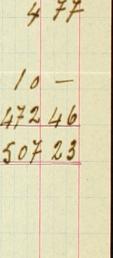 4 77
10 —
472 46
507 23